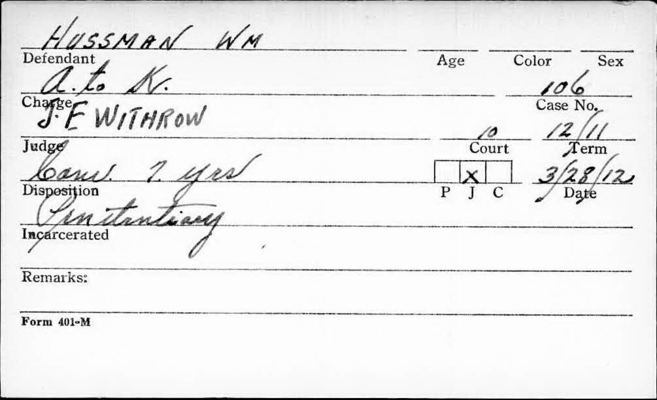 HUSSMAN WM
Defendant Age Color Sex
A. to K. 106
Charge Case No.
J. E WITHROW 10 12/11
Judge Court Term
Conv. 7 yrs X 3/28/12
Disposition P J C Date
Penitentiary
Incarcerated
Remarks:
Form 401-M